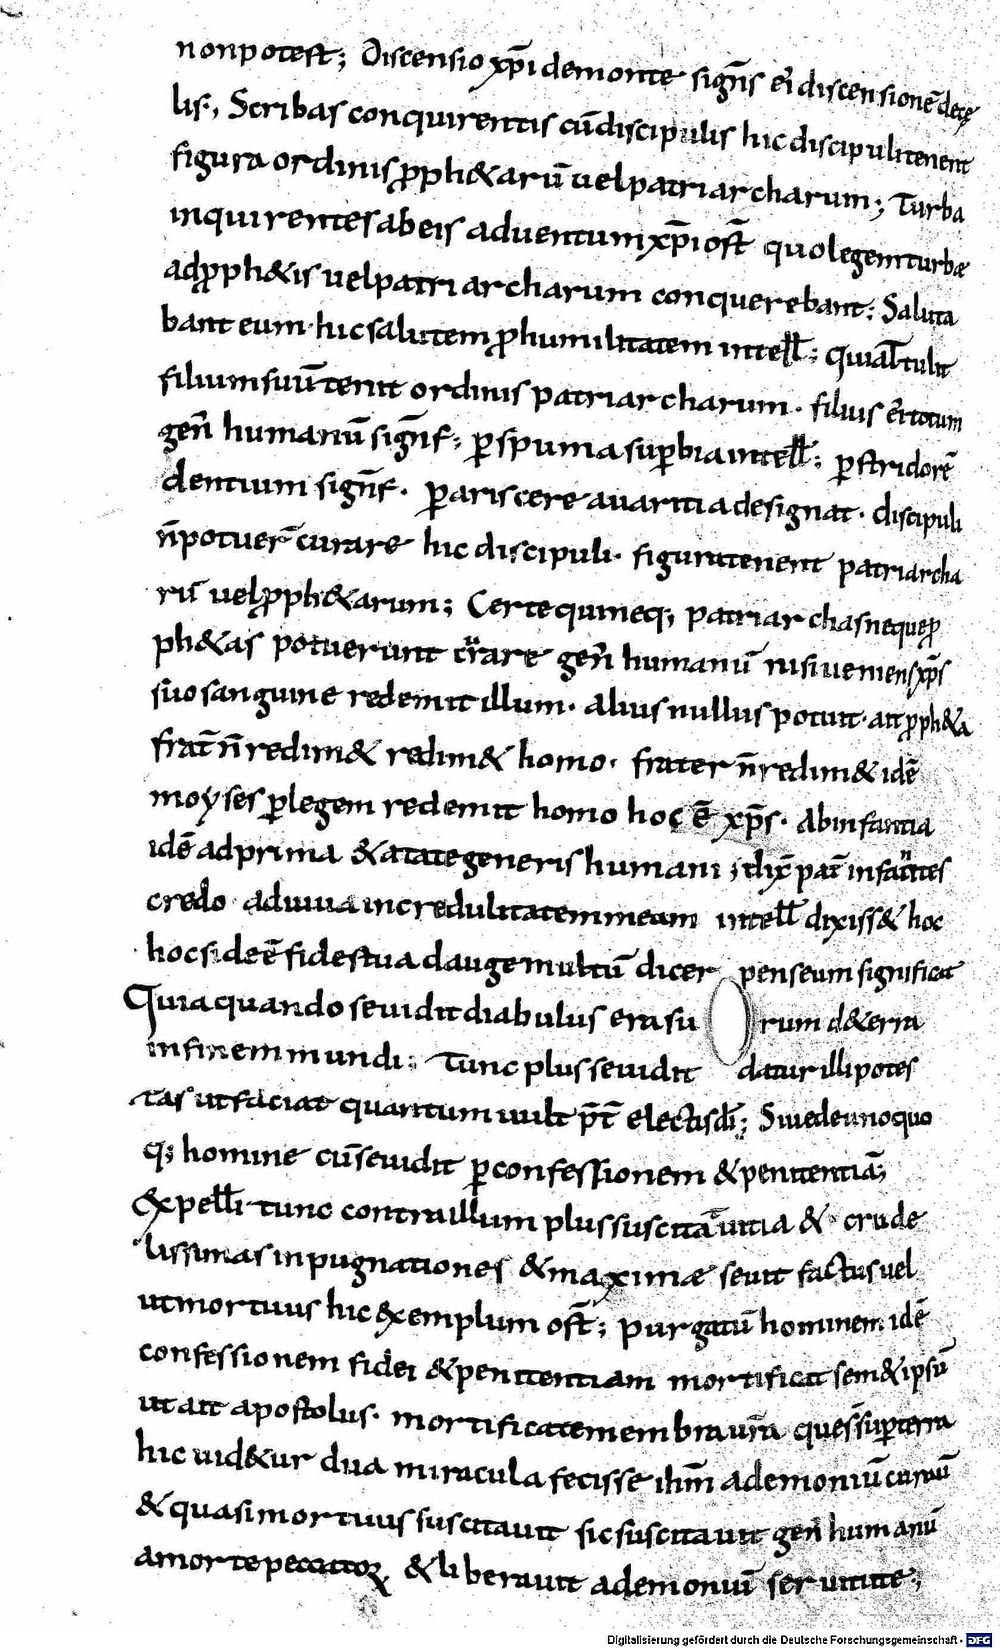 nonpotest; Discensio xp̄i demonte signīs ei discensionē dece
lis, Scribas conquirentis cū discipulis hic discipuli tenent
figura ordinis ꝓph&arū uel patriarcharum; Turba
inquirentes ab eis aduentum xp̄i ost̄ quo legem turbæ
ad ꝓph&is uel patriarcharum conquerebant; Saluta
bant eum hic salutem ꝓ humilitatem intell̄; quia tulit
filium suū tenit ordinis patriarcharum. filius totum
geñ humanū signf̄; ꝑ spuma suꝑbia intell̄; ꝑ stridorē
dentium signf̄. ꝑ ariscere auaritia designat. discipuli
n̄ potuer̄ curare hic discipuli. figura tenent patriarcha
rū uel ꝓph&arum; Certe quineq; patriarchas neque ꝓ
ph&as potuerunt curare geñ humanū nisi ueniens xp̄s
suo sanguine redemit illum. alius nullus potuit. ait ꝓph&a
frat̄ n̄ redim& redim& homo. frater n̄ redim& idē
moyses ꝑ legem redemit homo hoc ē xp̄s. Ab infantia
idē ad prima &ate generis humani; dix̄ pat̄ infantes
credo adiuua incredulitatem meam intell̄ dixiss& hoc
hoc side ē fides tua dauge multū dicer penseum significat
Quia quando seuidit diabulus erasu rum d&erra
in finem mundi; Tunc plus seuidit datur illi potes
tas ut faciat quantum uult p̄t electis dī; Siue de unoquo
q; homine cū seuidit ꝑ confessionem & penitentiā;
Expelli tunc contra illum plus suscitā uitia & crude
lissimas inpugnationes & maximæ seuit factus uel
ut mortuus hic exemplum ost̄; purgatū hominem idē
confessionem fidei & penitentiam mortificat sem&ipsū
ut ait apostolus. mortificate membra ur̄a que s̄ suꝑ terra
hic uid&ur dua miracula fecisse ih̄m a demoniū curauī
& quasi mortuus suscitauit sic suscitauit geñ humanū
a morte peccatoꝝ & liberauit a demoniū seruitute;
Digitalisierung gefördert durch die Deutsche Forschungsgemeinschaft - DFG